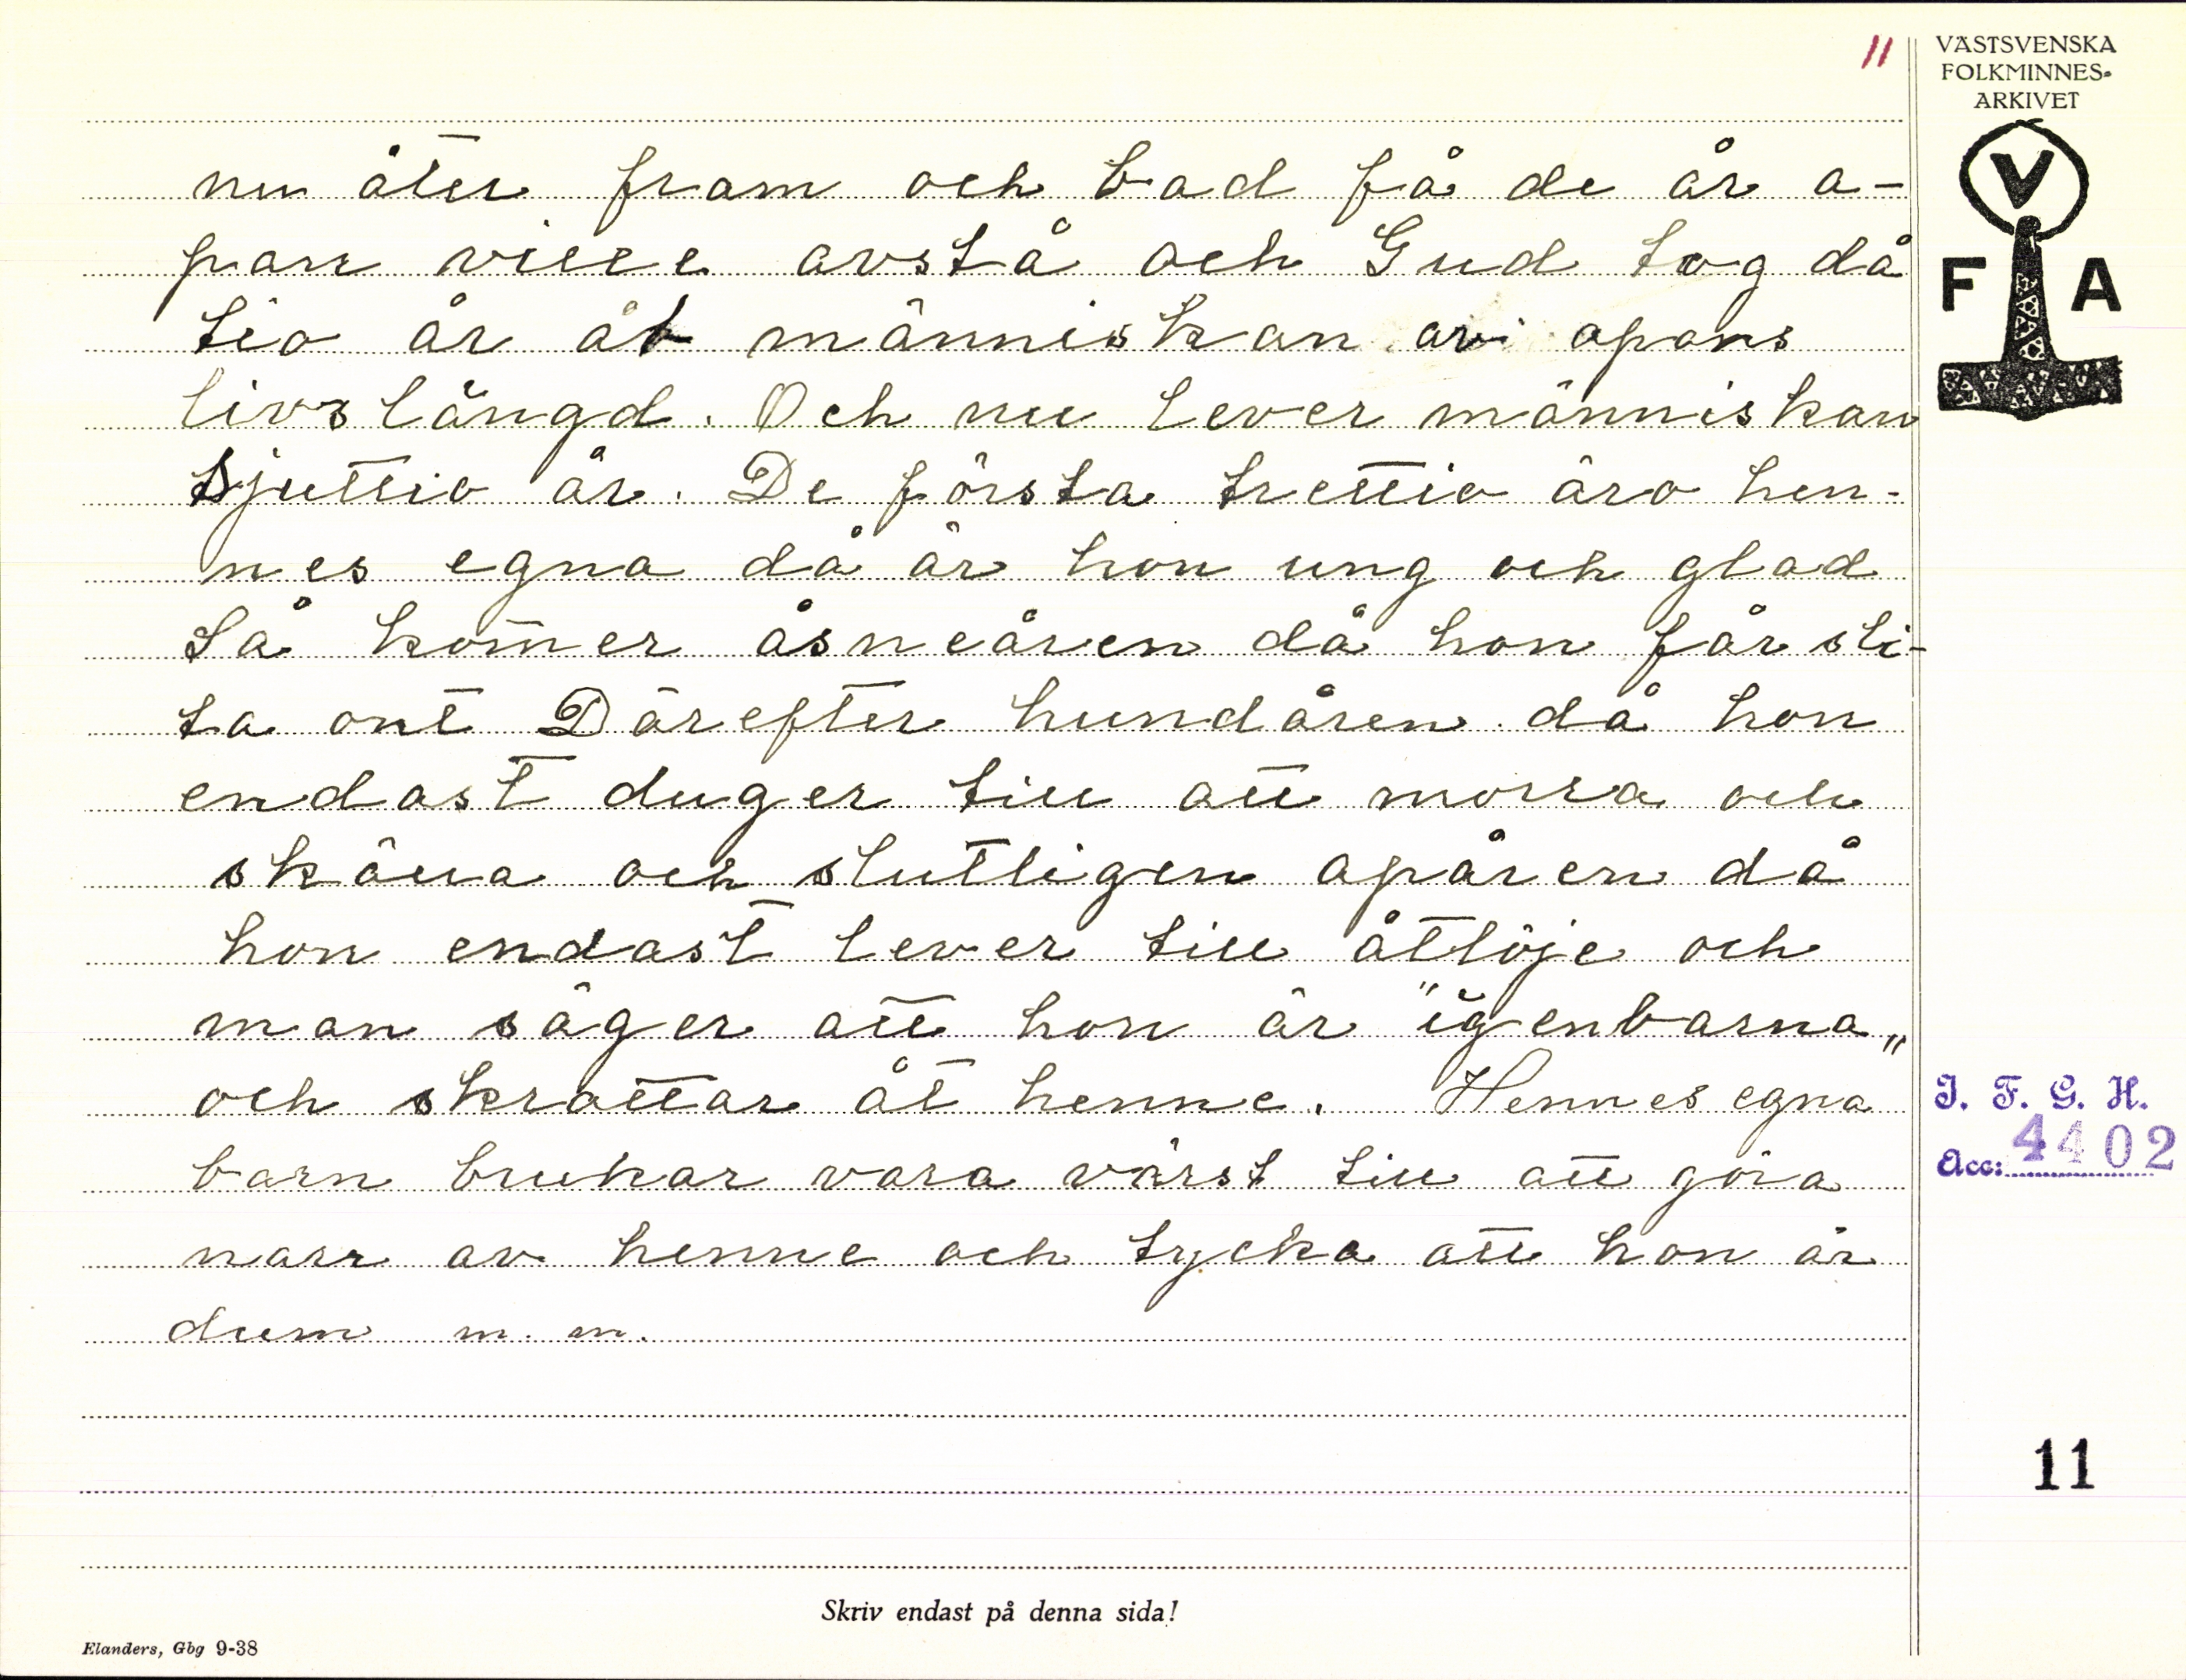 11
VÄSTSVENSKA
FOLKMINNES-
ARKIVET
V
F A
nu åter fram och bad få de år a-
pan ville avstå och Gud tog då
tio år åt människan av apans
livslängd. Och nu lever människan
sjuttio år. De första trettio äro hen-
nes egna då är hon ung och glad
så kom̄er åsneåren då hon får sli-
ta ont Därefter hundåren då hon
endast duger till att morra och
skälla och slutligen apåren då
hon endast lever till åtlöje och
man säger att hon är "igenbarna"
och skrattar åt henne. Hennes egna
barn brukar vara värst till att göra
narr av henne och tycka att hon är
dum m. m.
I. F. G. H.
Acc: 4402
11
Skriv endast på denna sida!
Elanders, Gbg 9-38